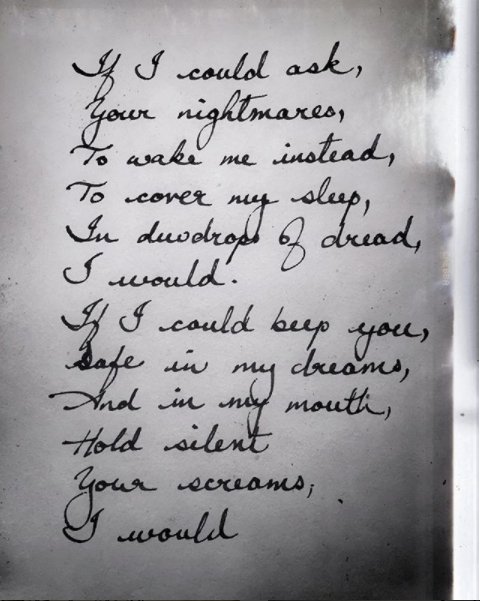 If I could ask,
Your nightmares,
To wake me instead,
To cover my sleep,
In duwdrops of dread,
I would.
If I could keep you,
Safe in my dreams,
And in my mouth,
Hold silent
Your screams;
I would